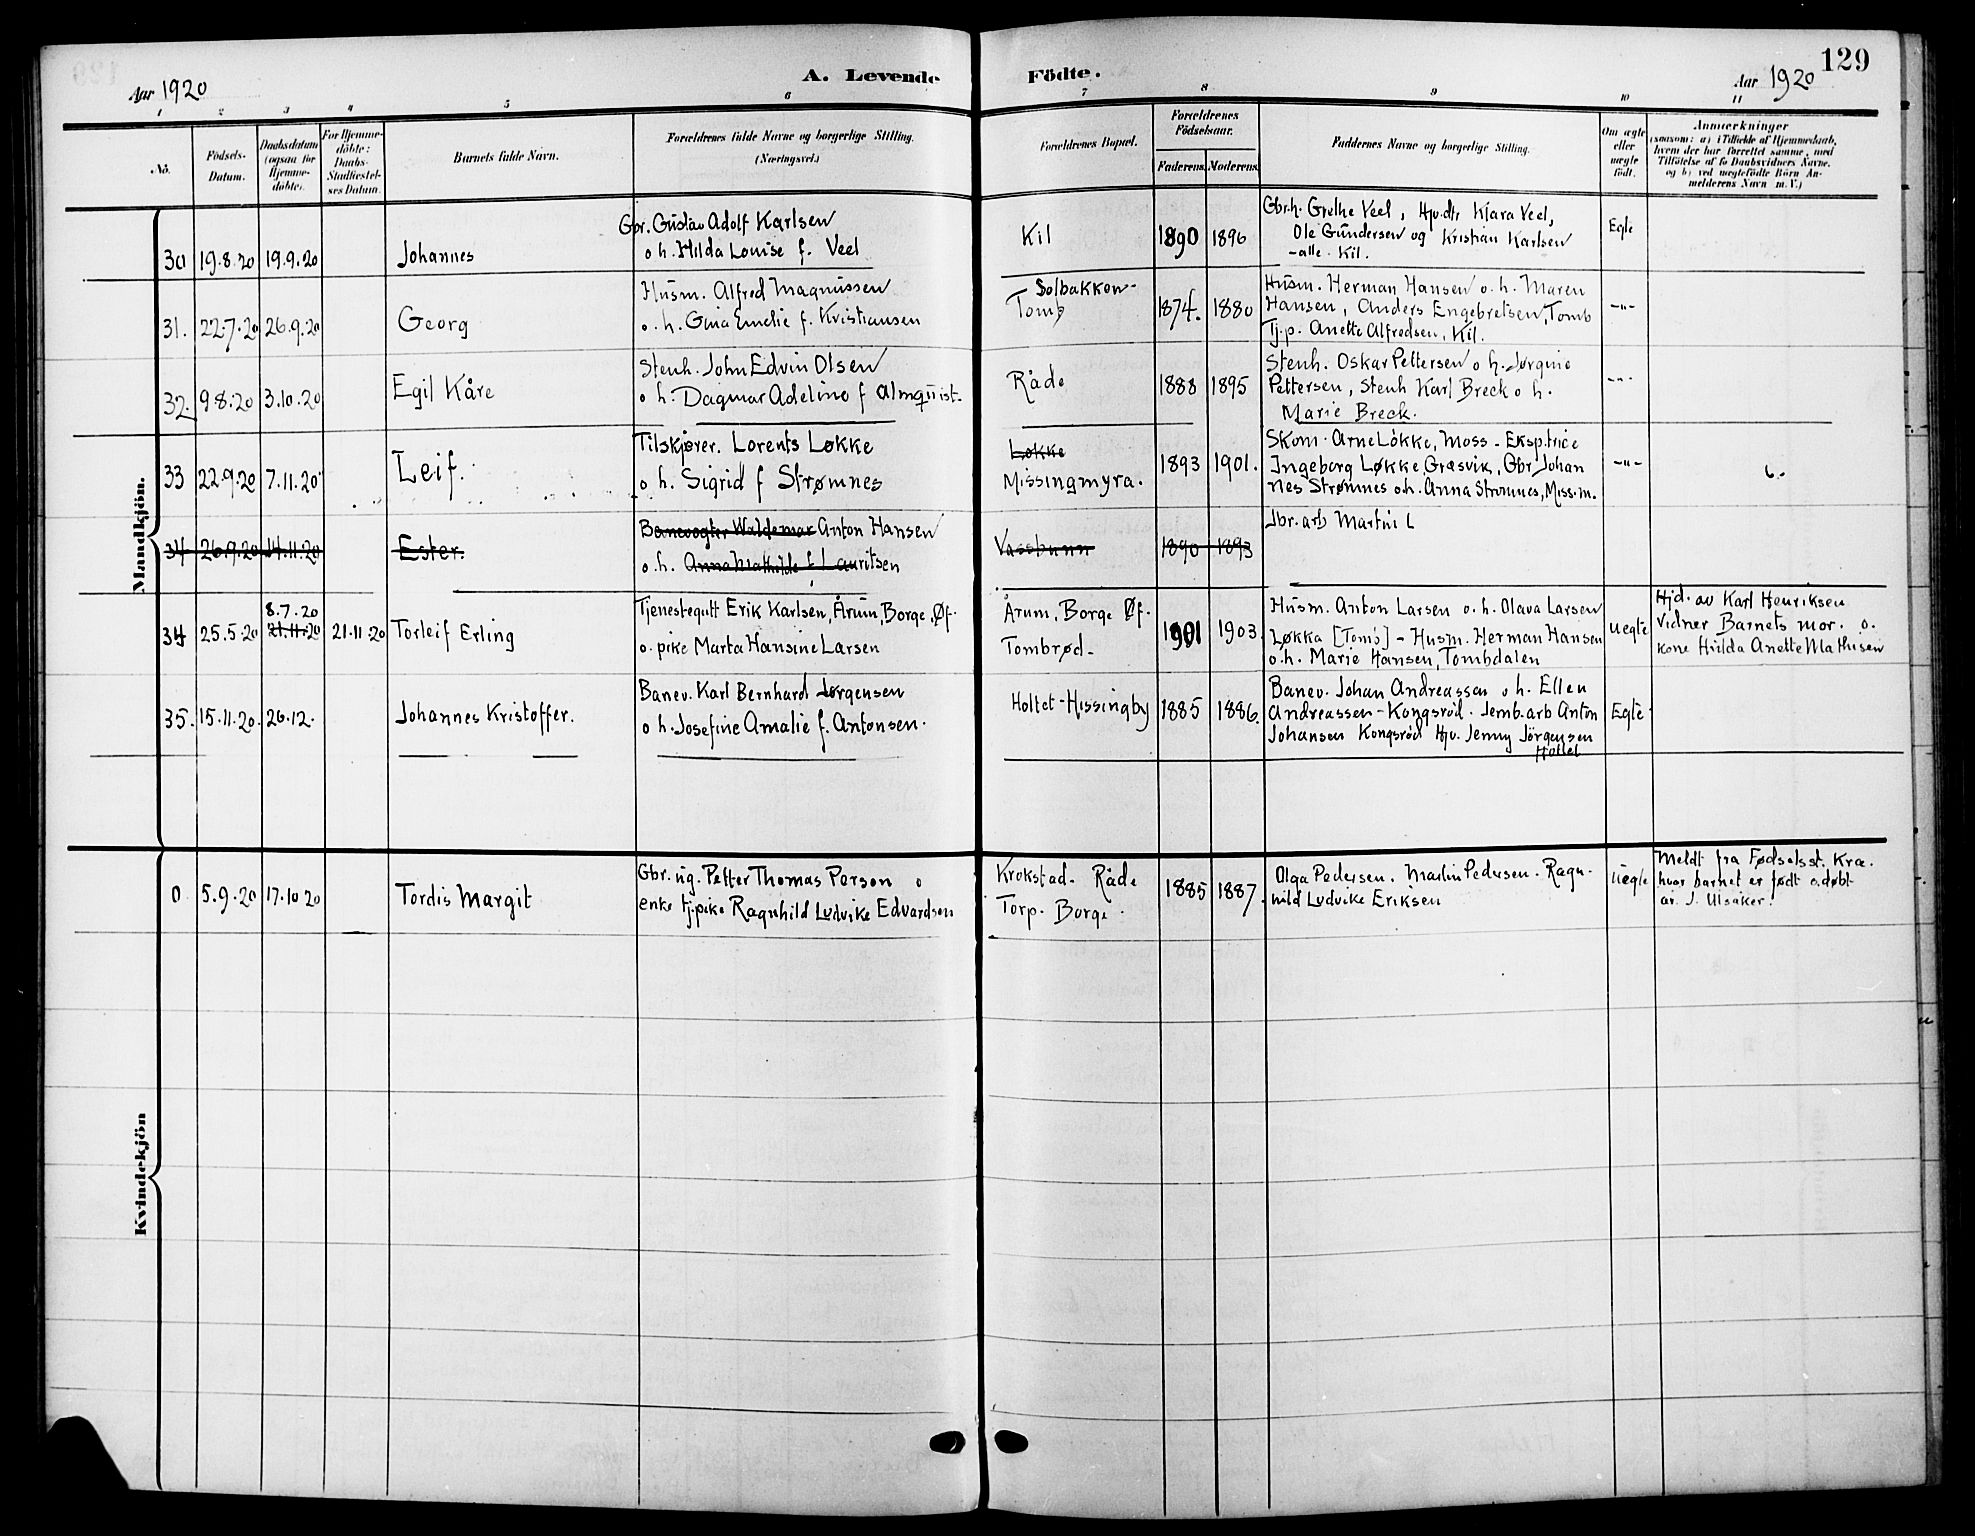 129
Aar 1920
A. Levende Födte.
Aar 1920
1 2 3 4 5 6 7 8 9 10 11
No.
Födsels-
Datum.
Daabsdatum
(ogsaa for
Hjemme-
döbte).
For Hjemme-
döbte:
Daabs-
Stadfæstel-
ses Datum.
Barnets fulde Navn.
Forældrenes fulde Navne og borgerlige Stilling.
(Næringsvei.)
Forældrenes Bopæl.
Forældrenes
Födselsaar.
Faderens. Moderens.
Faddernes Navne og borgerlige Stilling.
Om ægte
eller
uægte
födt.
Anmærkninger
(saasom: a) i Tilfælde af Hjemmedaab,
hvem der har forrettet samme, med
Tilföielse af to Daabsvidners Navne,
og b) ved uægtefödte Börn An-
melderens Navn m. V.)
Mandkjön.
30 19.8.20 19.9.20 Johannes
Gbr. Gustav Adolf Karlsen
o h. Hilda Louise f. Veel
Kil
1890 1896
Gbr.h. Grethe Veel, Hjv.dtr Klara Veel,
Ole Gundersen og Kristian Karlsen
- alle. Kil.
Egte
31. 22.7.20 26.9.20 Georg
Husm. Alfred Magnussen
o. h. Gina Emelie f. Kristiansen
Solbakken-
Tomb
1874. 1880
Husm. Herman Hansen o. h. Maren
Hansen, Anders Engebretsen, Tomb
Tj.p. Anette Alfredsen, Kil.
-"-
32. 9 8.20 3.10.20 Egil Kåre
Stenh. John Edvin Olsen
o h. Dagmar Adeline f Almquist.
Råde
1888 1895
Stenh. Oskar Pettersen o h. Jørgine
Pettersen, Stenh Karl Breck o h.
Marie Breck.
-"-
33 22.9.20 7.11.20 Leif.
Tilskjærer. Lorents Løkke
o h. Sigrid f Strømnes
Løkke
Missingmyra.
1893 1901.
Skom. Arne Løkke, Moss - Eksp.trice
Ingeborg Løkke, Græsvik, Gbr Johan
nes Strømnes o.h. Anna Strømnes, Miss.m.
-"-
34 26.9.20 14.11.20 Ester.
Banevogter Waldemar Anton Hansen
o. h. Anna Mathilde f Lauritsen
Vassbunn
1890 1893
Jbr. arb Martin L
34 25.5.20
8.7.20
21.11.20
21.11.20 Torleif Erling
Tjenestegutt Erik Karlsen, Årum, Borge, Øf.
o. pike Marta Hansine Larsen
Årum, Borge Øf.
Tombrød-
1901 1903.
Husm. Anton Larsen o. h. Olava Larsen
Løkka [Tomb] - Husm. Herman Hansen
o. h. Marie Hansen, Tombdalen
Uegte
Hjd. av Karl Henriksen
Vidner Barnets mor. o.
kone Hilda Anette Mathisen
35. 15.11.20. 26.12. Johannes Kristoffer.
Banev. Karl Bernhard Jørgensen
o h. Josefine Amalie f. Antonsen.
Holtet-Missingby
1885 1886.
Banev. Johan Andreassen o h. Ellen
Andreassen - Kongsrød. Jernb.arb Anton
Johansen Kongsrød Hjv. Jenny Jörgensen
Holtet
Egte
Kvindekjön
0 5.9.20 17.10 20 Tordis Margit
Gbr. ug. Petter Thomas Person o
enke tj.pike Ragnhild Ludvike Edvardsen
Krokstad. Råde
Torp. Borge.
1885 1887.
Olga Pedersen. Martin Pedersen. Ragn-
hild Ludvike Eriksen
Uegte
Meldt fra Fødselsst. Kra.
hvor barnet er født o. døbt
av. J. Ulsaker.